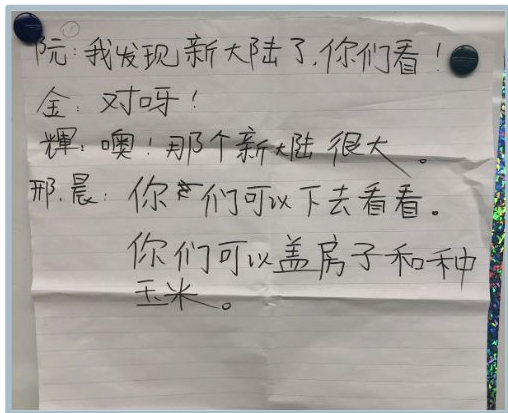 阮:我发现新大陆了,你们看!
金:对呀!
輝:噢!那个新大陆很大。
邢.晨:你们可以下去看看。
你们可以盖房子和种
玉米。